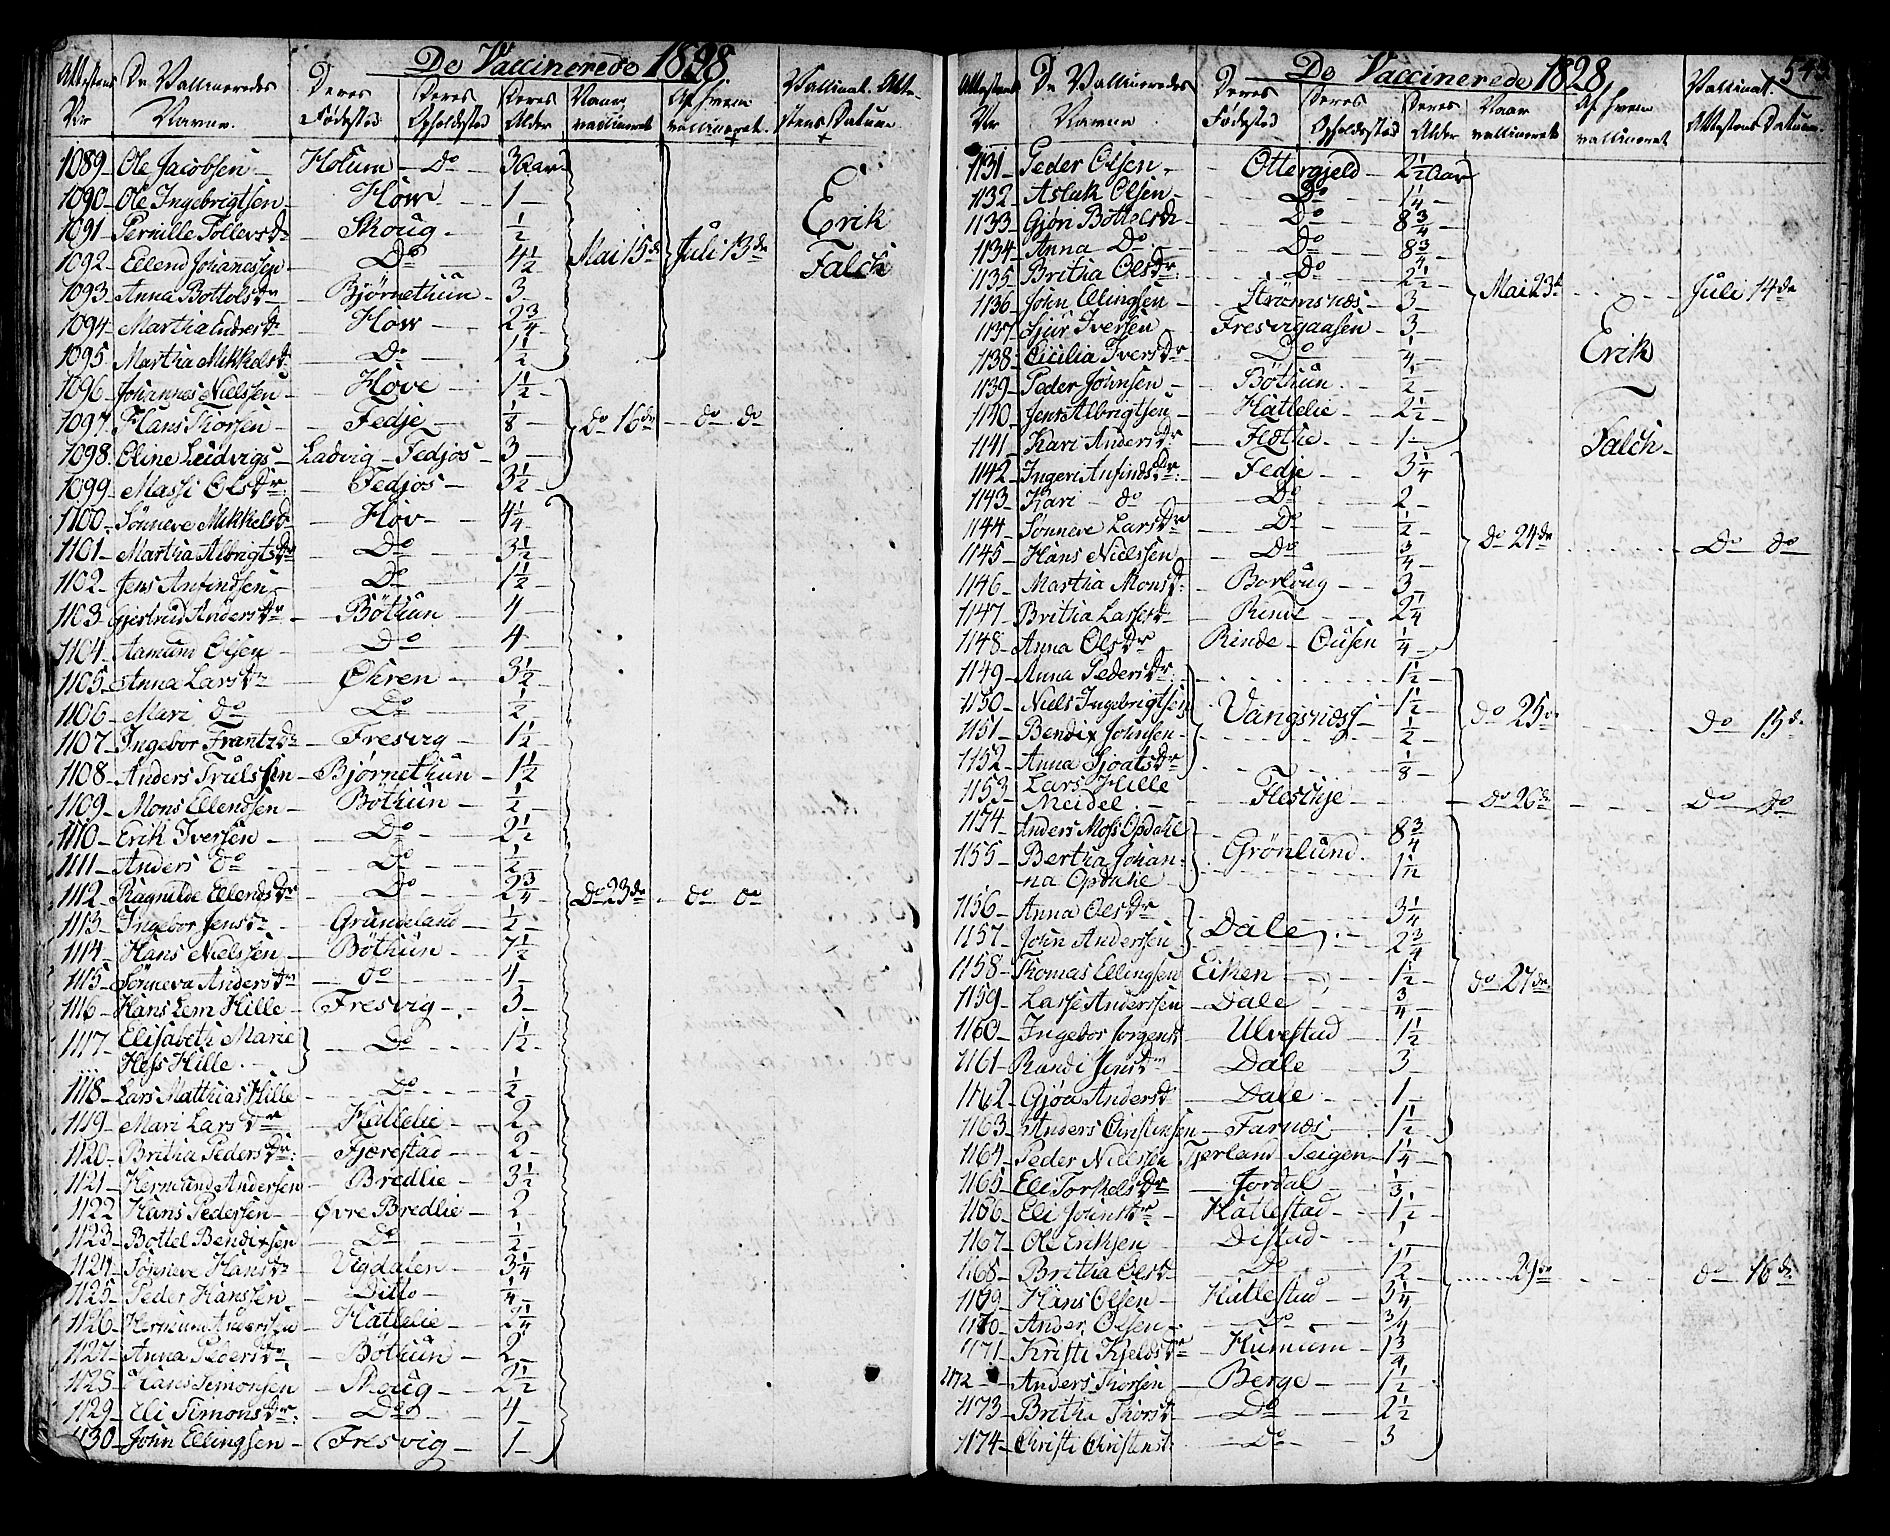 De Vaccinerede 1828.
Attestens Nr
De Vaccineredes Navne.
Deres Fødested
Deres Opholdssted
Deres Alder
Naar vaccineret
Af hvem vaccineret.
Vaccinat. Attestens Datum
1089 - Ole Jacobsen - Holum - Do - 3 Aar
1090 - Ole Ingebrigtsen - How - 1 -
1091 - Pernille Tollevsdr - Skoug - 1/2
1092 - Ellend Johanessen - Do - 4 1/2 Mai 15de Juli 13de Erik Falch
1093 - Anna Bottolsdr - Bjørnethun - 3 -
1094 - Martha Endresdr - How - 2 3/4
1095 - Martha Mikkelsdr - Do - 1 1/2
1096 - Johannes Nielssen - Hove - 1 1/2
1097 - Hans Thorsen - Fedje - 1/8 do 16de - do do
1098 - Oline Ludvigs - Ladvig - Fedjos - 3 -
1099 - Massi Olsdr - Fedjos - 3 1/2
1100 - Sönneve Mikkelsdr - Hov - 4 1/4
1101 - Martha Albrigtsdr - Do - 3 1/2
1102 - Jens Anfindsen - Do - 1 1/2
1103 - Gjertrud Andersdr - Böthun - 4
1104 - Aamund Olsen - Do - 4 -
1105 - Anna Larsdr - Øhren - 3 1/2
1106 - Mari do - Do - 1/2
1107 - Ingebor Frantzdr - Fresvig - 1 1/2
1108 - Anders Trulssen - Bjørnethun - 1 1/2
1109 - Mons Ellendsen - Böthun - 1/2
1110 - Erik Iversen - Do - 2 1/2
1111 - Anders do - Do - 1/2
1112 - Ragnilde Ellendsdr - Do - 2 3/4 Do 23de - do do
1113 - Ingebor Jensdr - Grundeland - 1/2
1114 - Hans Nielssen - Böthun - 7 1/2
1115 - Sönneva Andersdr - do - 4 -
1116 - Hans Lem Hille - Fresvig - 3 -
1117 - Elisabeth Marie
Hess Hille - Do - 1 1/2
1118 - Lars Matthias Hille - Do - 1/2
1119 - Mari Larsdr - Hatlelie - 2
1120 - Britha Pedersdr - Fjærestad - 2
1121 - Hermund Andersen - Bredlie - 3 1/2
1122 - Hans Pedersen - Øvre Bredlie - 2
1123 - Bottel Bendixsen - Do - 1/2
1124 - Sönneve Hansdr - Vigdalen - 3 1/4
1125 - Peder Hanssen - Ditto - 1/4
1126 - Hermund Anderssen - Hatlelie - 2 1/4
1127 - Anna Pedersdr - Böthun - 2
1128 - Hans Simonsen - Skoug - 2 1/2
1129 - Eli Simonsdr - Do - 4 -
1130 - John Ellingsen - Fresvig - 1 -
De Vaccinerede 1828.
545
Attestens Nr
De Vaccineredes Navne
Deres Fødested
Deres Opholdssted
Deres Alder
Naar vaccineret
Af hvem vaccineret
Vaccinat. Attestens Datum.
1131 - Peder Olsen - Ottergjeld - 2 1/2 Aar
1132 - Aslak Olsen - Do - 1/4
1133 - Gjøri Bottelsdr - Do - 8 3/4
1134 - Anna Do - Do - 8 3/4
1135 - Britha Olsdr - Do - 2 1/2
1136 - John Ellingsen - Strømsnæs - 3 - Mai 23de Juli 14de
1137 - Sjur Iversen - Fresvigaasen - 3 -
1138 - Cicilia Iversdr - Do - 1/4 Erik
1139 - Peder Johnsen - Böthun - 1/2
1140 - Jens Albrigtsen - Hatlelie - 2 1/2
1141 - Kari Andersdr - 1 - Falch
1142 - Ingeri Anfindsdr - Fedje - 3 1/4
1143 - Kari do - Do - 2 -
1144 - Sönneve Larsdr - Do - 1/2
1145 - Hans Nielssen - Do - 3/4 do 24de Do do
1146 - Martha Monsdr - Borloug - 3 -
1147 - Britha Lassesdr - Rinde - 2 1/4
1148 - Anna Olsdr - Rinde - Ousen 1/4
1149 - Anna Pedersdr 1 1/2
1150 - Niels Ingebrigtsen Vangsnæss 1 1/2 do 25de Do 15de
1151 - Bendix Johnsen - 1/2
1152 - Anna Sjoatsdr - 1/8
1153 Lars Hille
Meidel - Fleschje - do 26de Do Do
1154 - Anders Moss Opdahl 8 3/4
1155 - Bertha Johan- Grönlund 1 1/2
na Opdahl
1156 - Anna Olsdr 3 1/4
1157 - John Anderssen Dale 2 3/4
1158 - Thomas Ellingsen Eiken - 1 1/2 do 27de
1159 - Lasse Anderssen - Dale - 3/4
1160 - Ingebor Jørgensdr - Ulvestad - 1 1/2
1161 - Randi Jensdr - Dale - 3
1162 - Gjøa Andersdr - Dale - 1
1163 - Anders Christensen - Farnæs - 1 1/2
1164 - Peder Nielssen Fjerland Seigen - 1 1/4
1165 - Eli Torkelsdr - Jordal - 1/3
1166 - Eli Johnsdr - Hatlestad - 1 1/2
1167 - Ole Eriksen - Distad - 1 -
1168 - Britha Olsdr - Do - 1 1/2 29de do 16de
1169 - Hans Olsen - Hatlestad - 3 1/4
1170 - Anders Olsen - Do - 3/4
1171 - Kristi Kjeldsdr - Humum - 1 3/4
1172 - Anders Thorsen - Berge - 1 1/2
1173 - Britha Thorsdr - Do - 2 1/2
1174 - Christi Christensdr - Do - 3